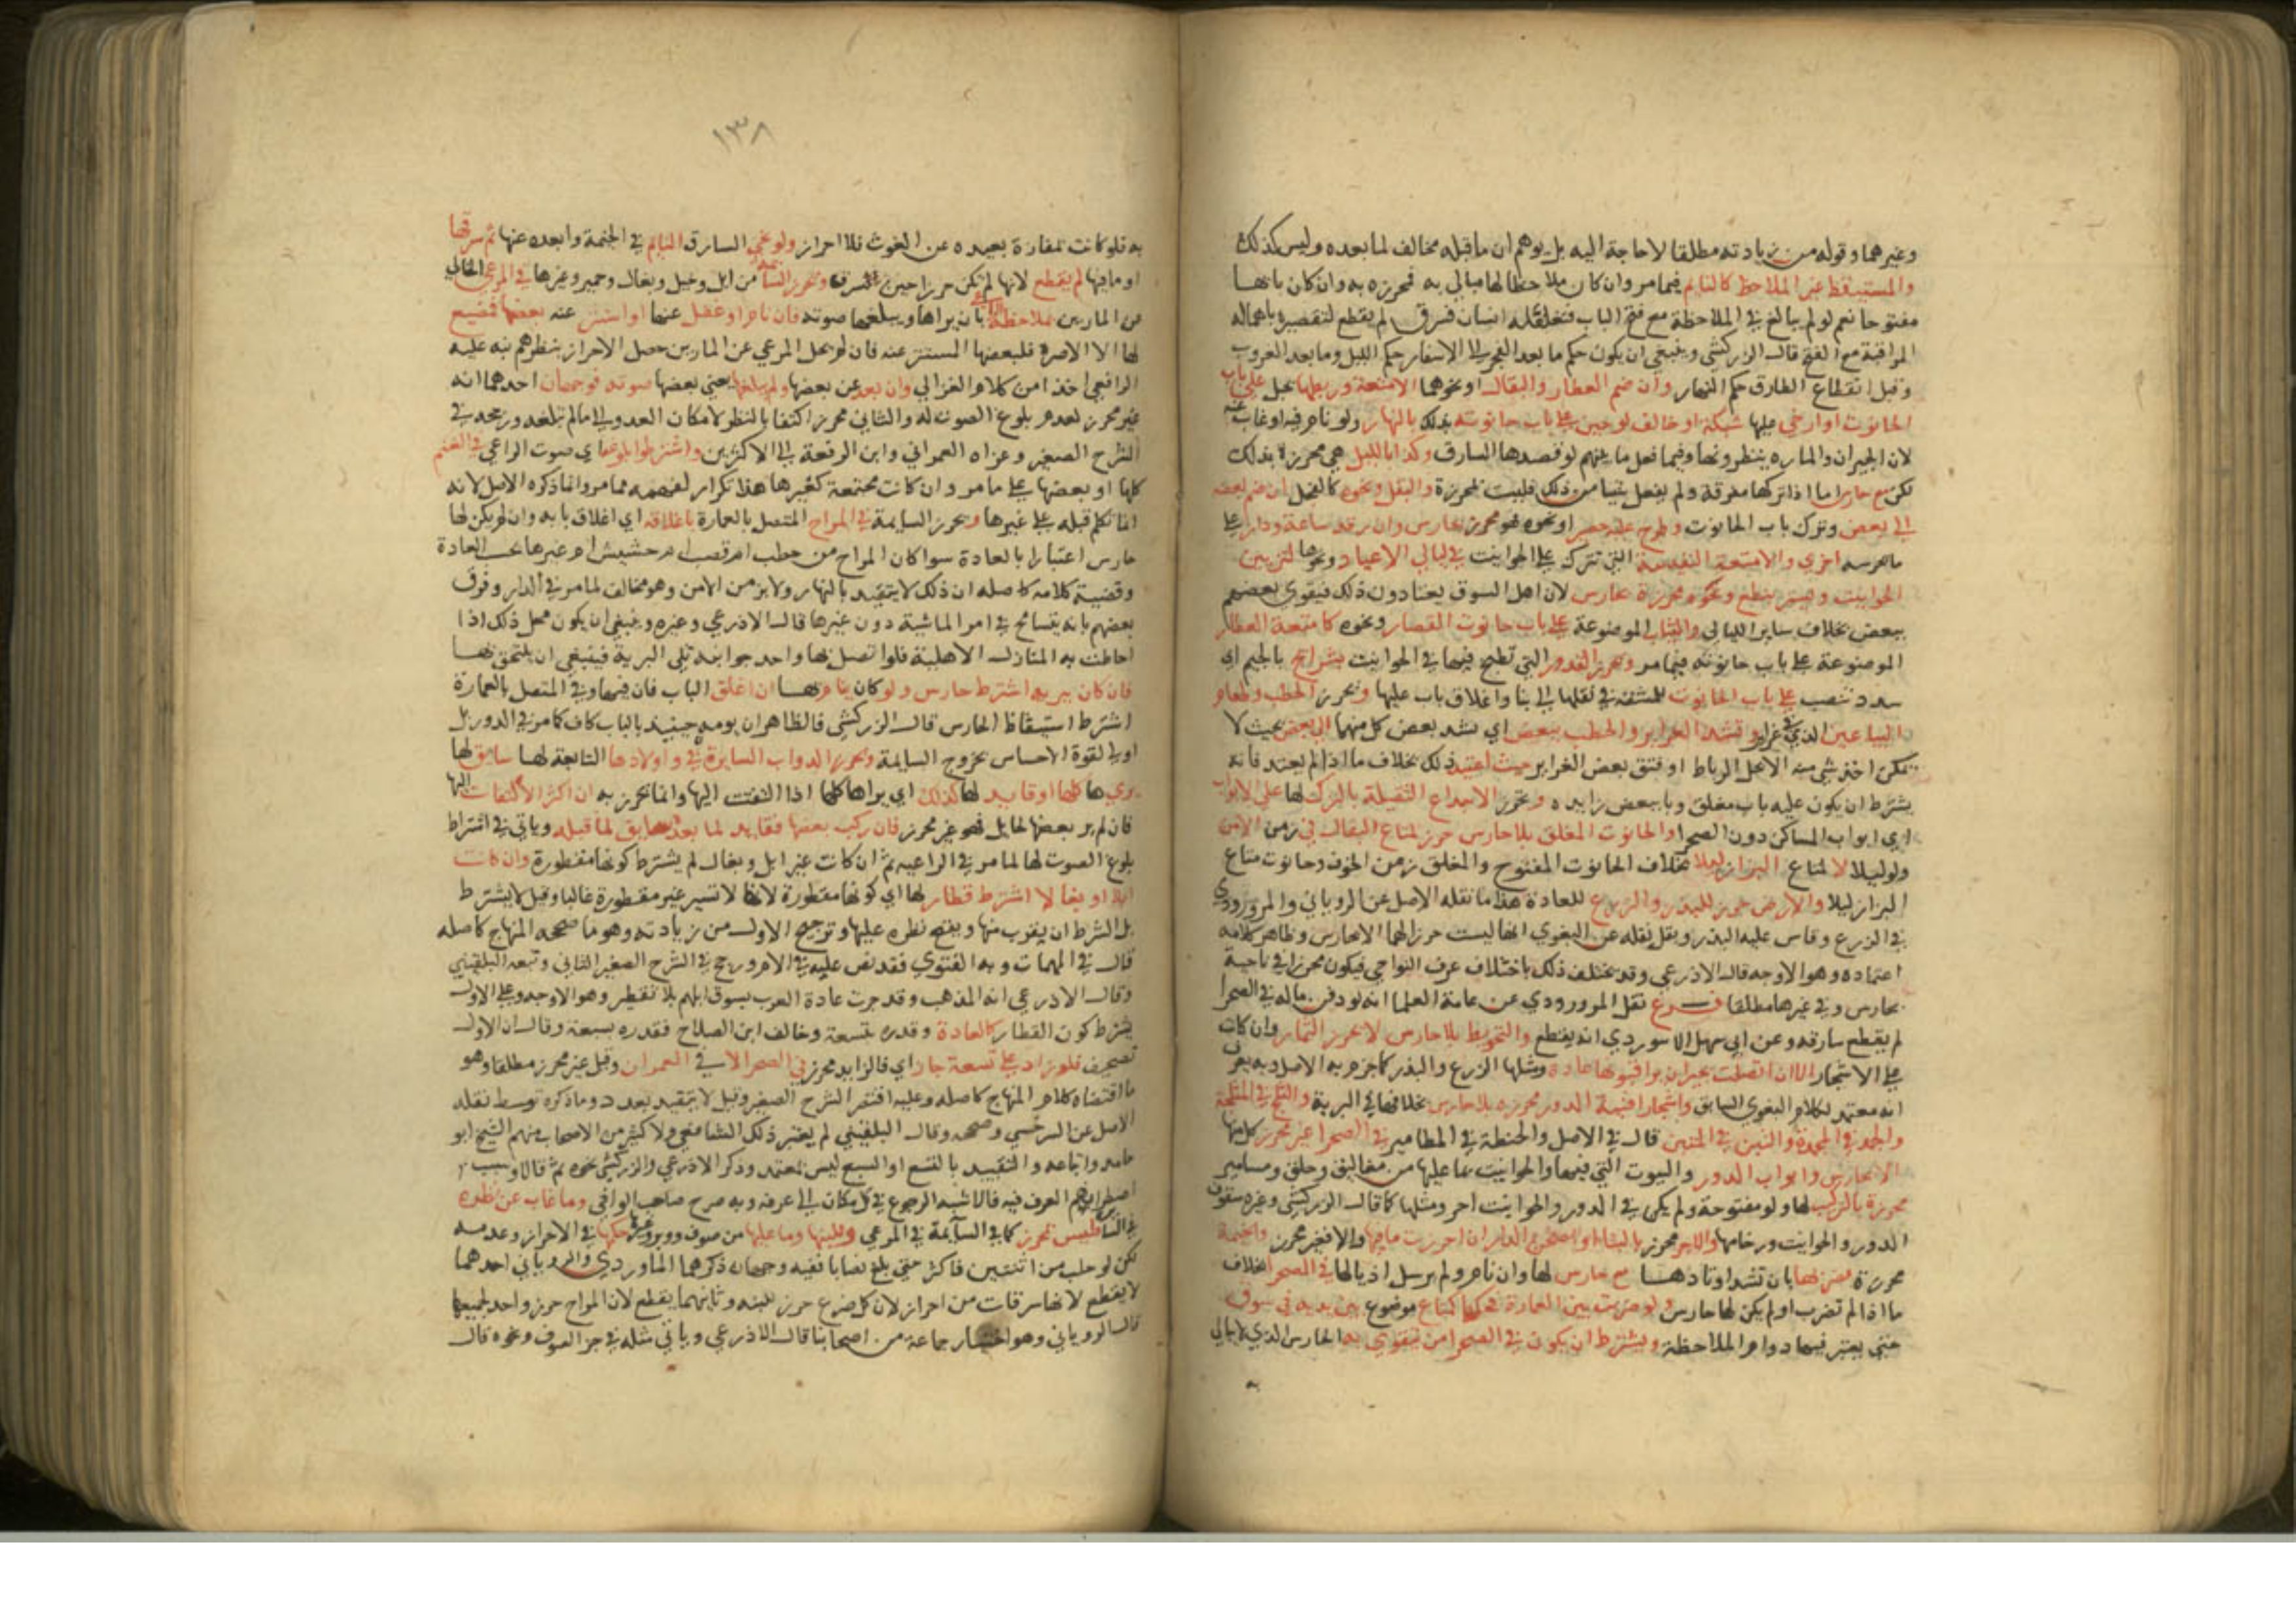 وغيرهما وقوله من زيادته مطلقا لا حاجة اليه بل يوهم ان ما قبله مخالف لما بعده وليس كذلك
والمستيقظ غير الملاحظ كالنايم فيما مر وان كان ملاحظا لها مبالي به فمحرزه به وان كان بابها
مفتوحا نعم لو لم يبالغ في الملاحظة مع فتح الباب فتغفله انسان فسرق لم يقطع لتقصيره باهماله
المراقبة مع الفتح قال الزركشي وينبغي ان يكون حكم ما بعد الفجر الى الاسفار حكم الليل وما بعد الغروب
وقبل انقطاع الطارق حكم النهار وان ضم العطار والبقال او نحوهما الامتعة وربطها بحبل على باب
الحانوت او ارخى عليها شبكة او خالف لوحين على باب حانوته بذلك بالنهار ولو نام فيه او غاب عنه
لان الجيران والماره ينظرونها وفيما فعل ما ينبههم لو قصدها السارق وكذا بالليل هي محرزة بذلك
لكن مع حارس اما اذا تركها مفرقة ولم يفعل شيا من ذلك فليست محرزة والبقل ونحوه كالفجل ان ضم بعضه
الى بعض وترك باب الحانوت وطرح عليه حصر او نحوه فهو محرز بحارس وان رقد ساعة ودار على
ما حرسه اخرى والامتعة النفيسة التي تترك على الحوانيت في ليالي الاعياد ونحوها لتزيين
الحوانيت وتستر بنطع ونحوه محرزة بحارس لان اهل السوق يعتادون ذلك فيقوى بعضهم
ببعض بخلاف ساير الليالي والثياب الموضوعة على باب حانوت القصار ونحوه كامتعة العطار
الموضوعة على باب حانوته فيما مر وتحرز القدور التي تطبخ فيها في الحوانيت بشرايج بالجيم اي
سدد تنصب على باب الحانوت للمشقة في نقلها الى بنا واغلاق باب عليها وتحرز الحطب وطعام
البياعين الذي في غراير وتشد الغراير والحطب ببعض اي بشد بعض كل منهما الى بعض بحيث لا
يمكن اخذ شي منه الا بحل الرباط او فتق بعض الغراير حيث اعتيد ذلك بخلاف ما اذا لم يعتد فانه
يشترط ان يكون عليه باب مغلق وبا ببعض زايده وتحرز الاجذاع الثقيلة بالترك لها على الابواب
اي ابواب المساكن دون الصحرا والحانوت المغلق بلا حارس حرز لمتاع البقال في زمن الامن
ولو ليلا لا لمتاع البزاز ليلا بخلاف الحانوت المفتوح والمغلق زمن الخوف وحانوت متاع
البزاز ليلا والارض حرز للبذر والزرع للعادة هذا ما نقله الاصل عن الروياني والمروروذي
في الزرع وقاس عليه البذر وبقل نقله عن البغوي انها ليست حرزا لهما الا بحارس وظاهر كلامه
اعتماده وهو الاوجه قال الاذرعي وقد يختلف ذلك باختلاف عرف النواحي فيكون محرزا في ناحية
بحارس وفي غيرها مطلقا فرع نقل المروروذي عن عامة العلما انه لو دفن ماله في الصحرا
لم يقطع سارقه وعن ابي سهل الابيوردي انه يقطع والتحويط بلا حارس لا يحرز الثمار وان كانت
على الاشجار الا ان اتصلت بجيران يراقبونها عادة ومثلها الزرع والبذر كما جزم به الاصل وبه يعرف
انه معتمد لكلام البغوي السابق واشجار افنية الدور محرزه بلا حارس بخلافها في البرية والثلج في المثلجة
والجمد في المجمدة والتبن في المتبن قال في الاصل والحنطة في المطامير في الصحرا غير محرز كل منها
الا بحارس وابواب الدور والبيوت التي فيها والحوانيت بما عليها من مغاليق وحلق ومسامير
محرزة بالتركيب لها ولو مفتوحة ولم يكن في الدور والحوانيت احد ومثلها كما قال الزركشي وغيره سقوف
الدور والحوانيت ورخامها والاجر محرز بالبنا او احضرع الدار ان احرزت ما فيها والا فغير محرز والخيمة
محرزة بضربها بان تشد اوتادها مع حارس لها وان نام ولو لم يرسل اذيالها في الصحرا بخلاف
ما اذا لم تضرب او لم يكن لها حارس ولو ضربت بين العمارة فكمتاع موضوع بين يديه في سوق
حتى يعتبر فيها دوام الملاحظة ويشترط ان يكون في الصحرا من يتقوى به الحارس الذي لا يبالي
به
١٣٨
به فلو كانت بمفازة بعيده عن الغوث فلا احراز ولو نحى السارق النايم في الخيمة وابعده عنها ثم سرقها
او ما فيها لم يقطع لانها لم تكن حرزا حين سرق وتحرز الماشية من ابل وخيل وبغال وحمير وغيرها في المرعى الخالي
عن المارين بملاحظة الراعي بان يراها ويبلغها صوته فان نام او غفل عنها او استتر عنه بعضها فمضيع
لها الا الاصره فلبعضها المستتر عنه فان لم يخل المرعي عن المارين حصل الاحراز بنظرهم نبه عليه
الرافعي اخذا من كلام الغزالي وان بعد عن بعضها ولم يبلغها يعني بعضها صوته فوجهان احدهما انه
غير محرز لعدم بلوغ الصوت له والثاني محرز اكتفا بالنظر لامكان العدو الى ما لم يبلغه ورجحه في
الشرح الصغير وعزاه العمراني وابن الرفعة الى الاكثرين واشترطوا بلوغها اي صوت الراعي في الغنم
كلها او بعضها على ما مر وان كانت مجتمعة كغيرها هذا تكرار لفهمه مما مر وانما ذكره الاصل لانه
انما تكلم قبله على غيرها وتحرز السايمة في المراح المتصل بالعمارة باغلاقه اي اغلاق بابه وان لم يكن لها
حارس اعتبارا بالعادة سوا كان المراح من حطب ام قصب ام حشيش ام غيرها بحسب العادة
وقضية كلامه كاصله ان ذلك لا يتقيد بالنهار ولا بزمن الامن وهو مخالف لما مر في الدار وفرق
بعضهم بانه يتسامح في امر الماشية دون غيرها قال الاذرعي وغيره وينبغي ان يكون محل ذلك اذا
احاطت به المنازل الاهلية فلو اتصل بها واحد جوانبه تلي البرية فينبغي ان يلتحق بها
فان كان ببرية اشترط حارس ولو كان ينام بها ان اغلق الباب فان فيها وفي المتصل بالعمارة
اشترط استيقاظ الحارس قال الزركشي فالظاهر ان نومه حينيذ بالباب كاف كما مر في الدور بل
اولى لقوة الاحساس بخروج السايمة وتحرز الدواب السايرة في واولادها التابعة لها سايق لها
يرى ها كلها او قايد لها كذلك اي يراها كلها اذا التفت اليها وانما تحرز به ان اكثر الالتفات اليها
فان لم ير بعضها لحايل فهو غير محرز فان ركب بعضها فقايد لما بعده وسابق لما قبله وياتي في اشتراط
بلوغ الصوت لها لما مر في الراعيه ثم ان كانت غير ابل وبغال لم يشترط كونها مقطورة وان كانت
ابلا او بغالا اشترط قطار لها اي كونها مقطورة لانها لا تسير غير مقطورة غالبا وقيل لا يشترط
بل الشرط ان يقرب منها ويقع نظره عليها وترجيح الاول من زيادته وهو ما صححه المنهاج كاصله
قال في المهمات وبه الفتوى فقد نص عليه في الام ورجح في الشرح الصغير الثاني وتبعه البلقيني
وقال الاذرعي انه المذهب وقد جرت عادة العرب بسوق ابلهم بلا تقطير وهو الاوجه وعلى الاول
يشترط كون القطار كالعادة وقدره بتسعة وخالف ابن الصلاح فقدره بسبعة وقال ان الاول
تصحيف فلو زاد على تسعة جاز اي فالزايد محرز في الصحرا لا في العمران وقيل غير محرز مطلقا وهو
ما اقتضاه كلام المنهاج كاصله وعليه اقتصر الشرح الصغير وقيل لا يتقيد بعدد وما ذكره توسط نقله
الاصل عن السرخسي وصححه وقال البلقيني لم يعتبر ذلك الشافعي ولا كثير من الاصحاب منهم الشيخ ابو
حامد واتباعه والتقييد بالتسع او السبع ليس بمعتمد وذكر الاذرعي والزركشي نحوه ثم قالا وسبب
اضطرابهم العرف فيه فالاشبه الرجوع في كل مكان الى عرفه وبه صرح صاحب الوافي وما غاب عن نظره
في السا فليس بمحرز كما في السايمة في المرعى وللبنها وما عليها من صوف ووبر وغيره حكمها في الاحراز وعدمه
لكن لو حلب من اثنتين فاكثر حتى بلغ نصابا ففيه وجهان ذكرهما الماوردي والروياني احدهما
لا يقطع لانها سرقات من احراز لان كل ضرع حرز للبنه وثانيهما يقطع لان المراح حرز واحد لجميعها
قال الروياني وهو اختيار جماعة من اصحابنا قال الاذرعي وياتي مثله في جز الصوف ونحوه قال